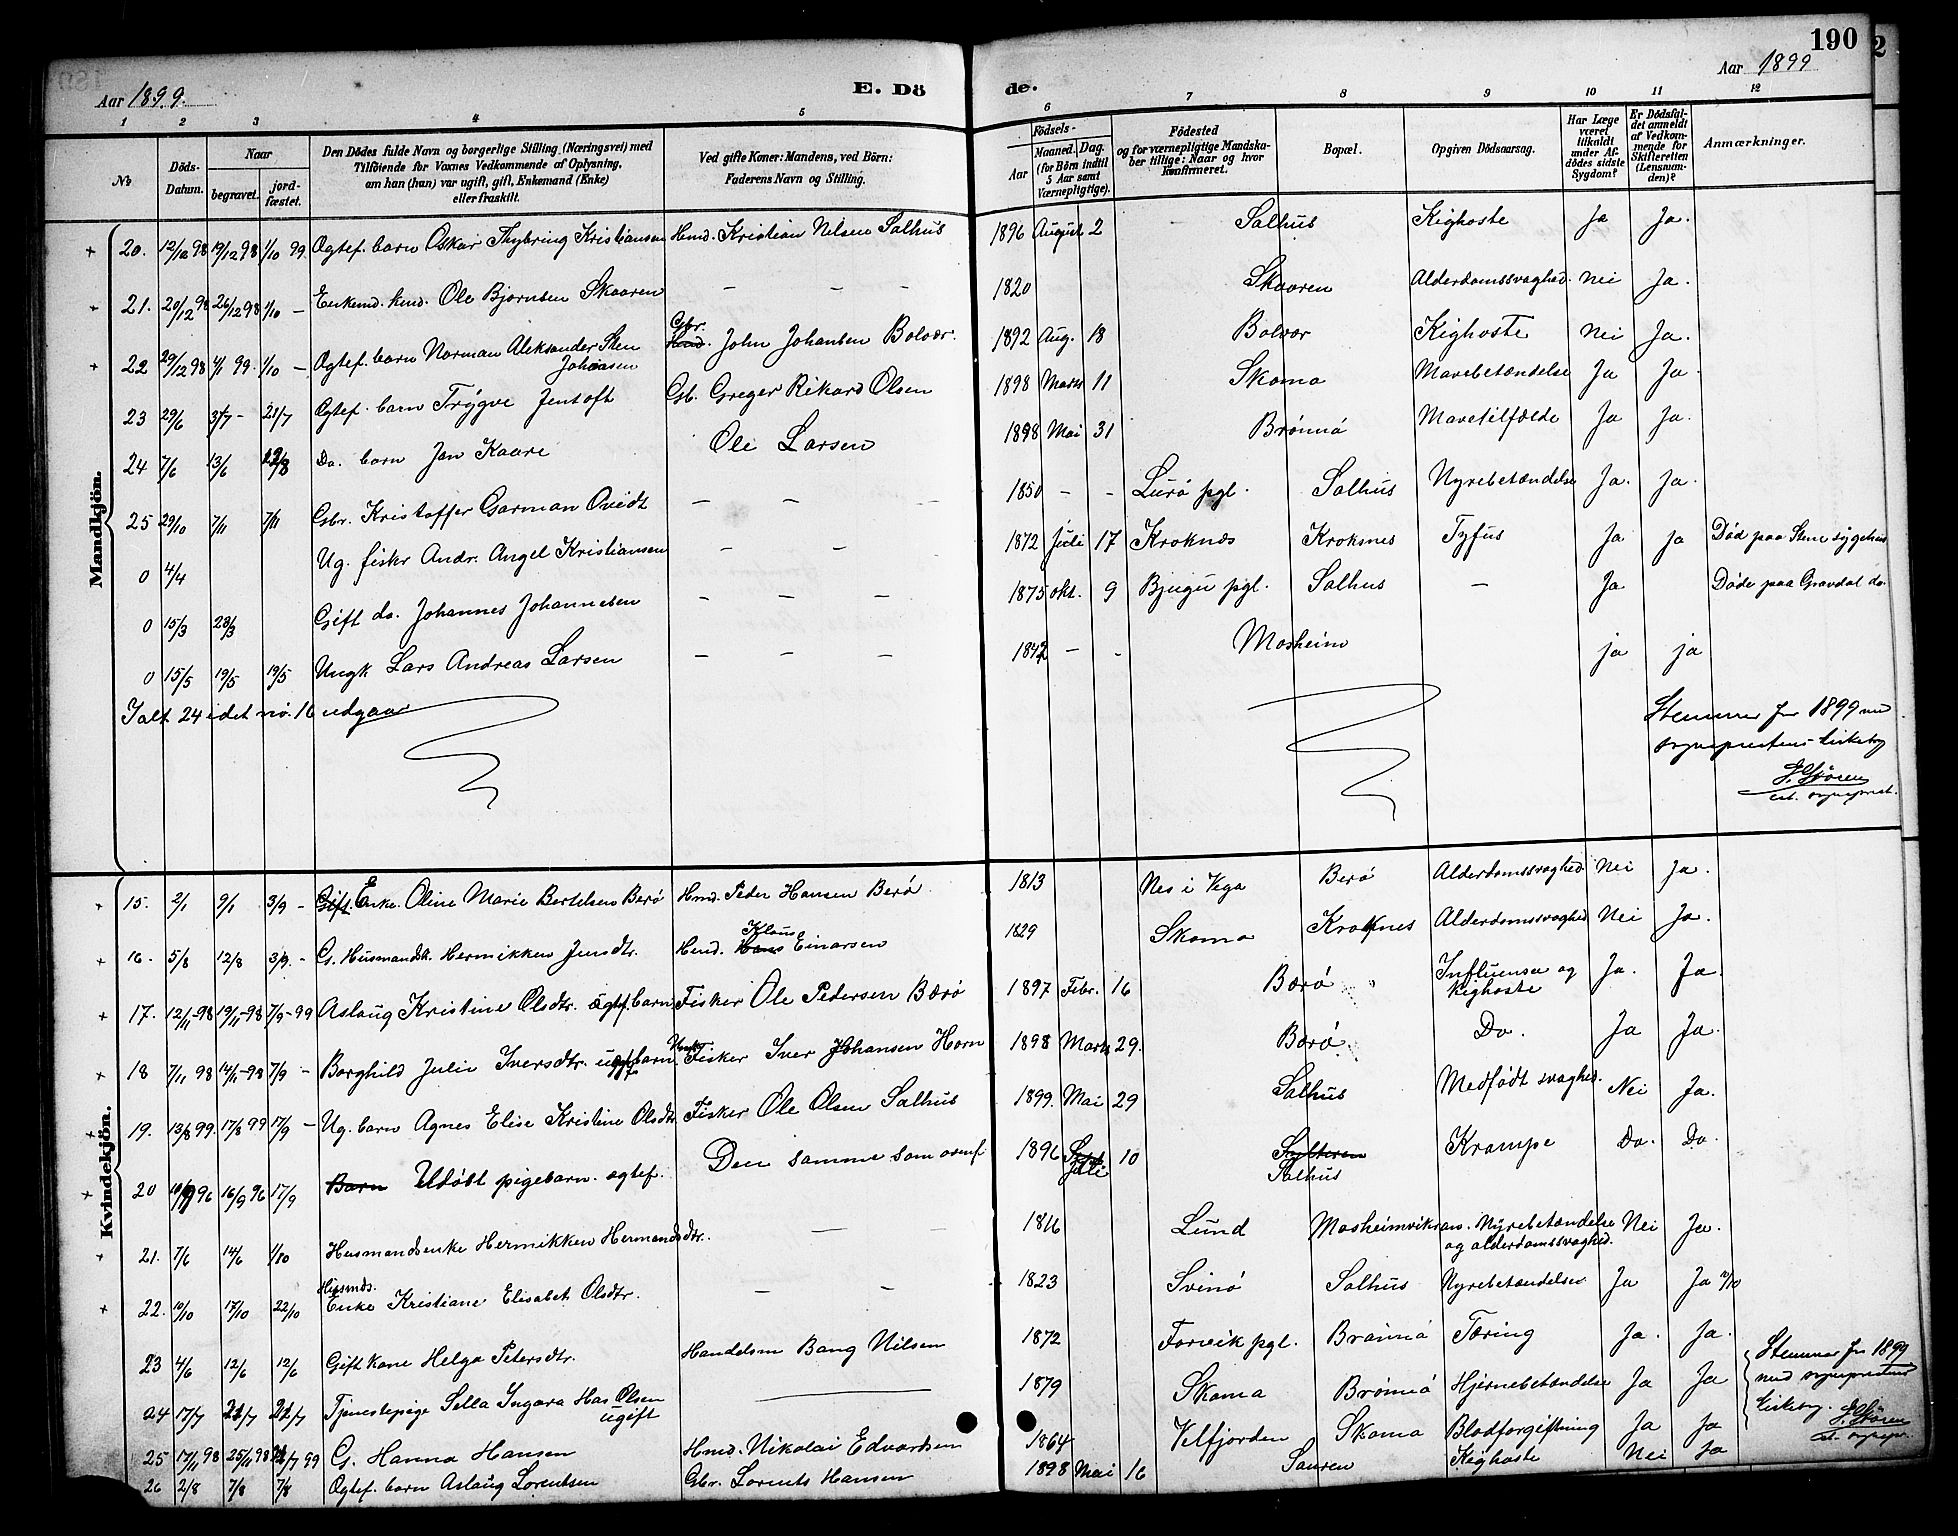 190
Aar 1899.
E. Dö
de.
Aar 1899
1 2 3 4 5
6 7 8 9 10 11 12
№
Döds-Datum.
Naar
begravet.
jord-fæstet.
Den Dödes fulde Navn og borgerlige Stilling (Næringsvei) med
Tilföiende for Voxnes Vedkommende af Oplysning,
om han (hun) var ugift, gift, Enkemand (Enke)
eller fraskilt.
Ved gifte Koner: Mandens, ved Börn:
Faderens Navn og Stilling.
Födsels-
Aar
Maaned. Dag.
(for Börn indtil
5 Aar samt
Værnepligtige).
Födested
og for værnepligtige Mandska-
ber tillige: Naar og hvor
konfirmeret.
Bopæl.
Opgiven Dödsaarsag.
Har Læge
været
tilkaldt
under Af-
dödes sidste
Sygdom?
Er Dödsfal-
det anmeldt
af Vedkom-
mende for
Skifteretten
(Lensman-
den)?
Anmærkninger.
Mandkjön.
20. 12/12 98 19/12 98 1/10 99 Ogtef. barn Oskar Thybring Kristiansen Hmd. Kristian Nilsen Salhus 1896 August 2 — Salhus Kighoste Ja Ja.
21. 20/12 98 26/12 98 1/10 — Enkemd. hmd. Ole Bjørnsen Skaaren — — — 1820 Skaaren Alderdomssvaghed. Nei Ja.
22 29/12 98 4/1 99. 1/10 — Ogtef. barn Norman Aleksander Sten Johansen Gbr. Hmd. John Johansen Bolvær. 1892 Aug. 18 Bolvær Kighoste Nei Ja.
23 29/6 3/7 — 21/7 Ogtef. barn Trygve Jentoft Gb. Greger Rikard Olsen 1898 Marts 11 Skomo Mavebetændelse Ja Ja.
24 7/6 13/6 12/8 Do. barn Jan Kaare Ole Larsen 1898 Mai 31 Brønnø Mavetilfælde Ja Ja.
25 29/10 7/11 7/11 Gbr. Kristoffer Garman Qvidt — — — 1850 — — Lurø pgl. Salhus Nyrebetændelse Ja. Ja.
0 4/4 Ug. fisker Andr. Angel Kristiansen — — 1872 Juli 17 Kroknes Kroksnes Tyfus Ja Ja Død paa Stene sygehus
0 15/3 23/3 Gift do. Johannes Johannesen — — — 1875 okt. 9 Bjugn pgl. Salhus — Ja Døde paa Gravdal do.
0 15/5 19/5 19/5 Ungk Lars Andreas Larsen — — — 1842 — - Mosheim ja ja
Ialt 24 idet no. 16 udgaar
Stemmer for 1899 med
sogneprestens kirkebog
Kvindekjön.
15. 2/1 9/1 3/9 — Gift. Enke. Oline Marie Bertelsen Berø Hmd. Peder Hansen Berø 1813 Nes i Vega Berø Alderdomssvaghed Nei Ja.
16. 5/8 12/8 3/9. — G. Husmandsk. Hermikken Jensdtr. Hmd. Hans Klaus Einarsen 1829 Skomo Kroknes Alderdomssvaghed Nei Ja.
17. 12/11-98 19/11-98 7/9-99 Aslaug Kristine Olsdtr. ægtef. barn Fisker Ole Pedersen Bærø 1897 Febr. 16 Bærø Influensa og Kighoste Ja. Ja.
18 7/11 98 14/11-98 7/9 — Borghild Julie Iversdtr. barn. Fisker Iver Johansen Horn 1898 Marts 29. Bærø Do. Ja Ja.
19. 13/8 99. 17/8 99 17/9 — Ug. barn Agnes Elise Kristine Olsdtr. Fisker Ole Olsen Salhus 1899. Mai 29 Salhus Medfødt svaghed. Nei Ja.
20 10/9 96 16/9 96 17/9 Barn Udøbt pigebarn. ægtef. Den samme som ovenf 1896 Sept Juli 10 Salhus Krampe Do. Do.
21. 7/6 14/6 1/10 Husmandsenke Hermikken Hermandsdtr. — — 1816 Lund Mosheimviken. Nyrebetændelse og alderdomssvaghed. Nei Ja.
22. 10/10 17/10 22/10 Husmds. Enke Kristiane Elisabet Olsdtr. — — 1823 Svinø Salhus Nyrebetændelse Ja Ja
23 4/6 12/6 12/6 Gift kone Helga Petersdtr. Handelsm Bang Nilsen 1872 Forvik pgl. Brønnø Tæring Ja. Ja.
24 17/7 21/7 21/7 Tjenestepige Sella Ingara Has Olsen ugift 1879 Skomo Brønnø Hjernebetændelse Ja Ja
25 17/11 98 25/11 98 99 G. Hanna Hansen Hmd. Nikolai Edvardsen 1864 Velfjorden Skomo Blodforgiftning Ja Ja
26 2/8 7/8 7/8 Ogtef. barn Aslaug Lorentsen Gbr. Lorents Hansen 1898 Mai 16 Sauren Kighoste Nei Ja
Stemmer for 1899
med sogneprestens
kirkebog.